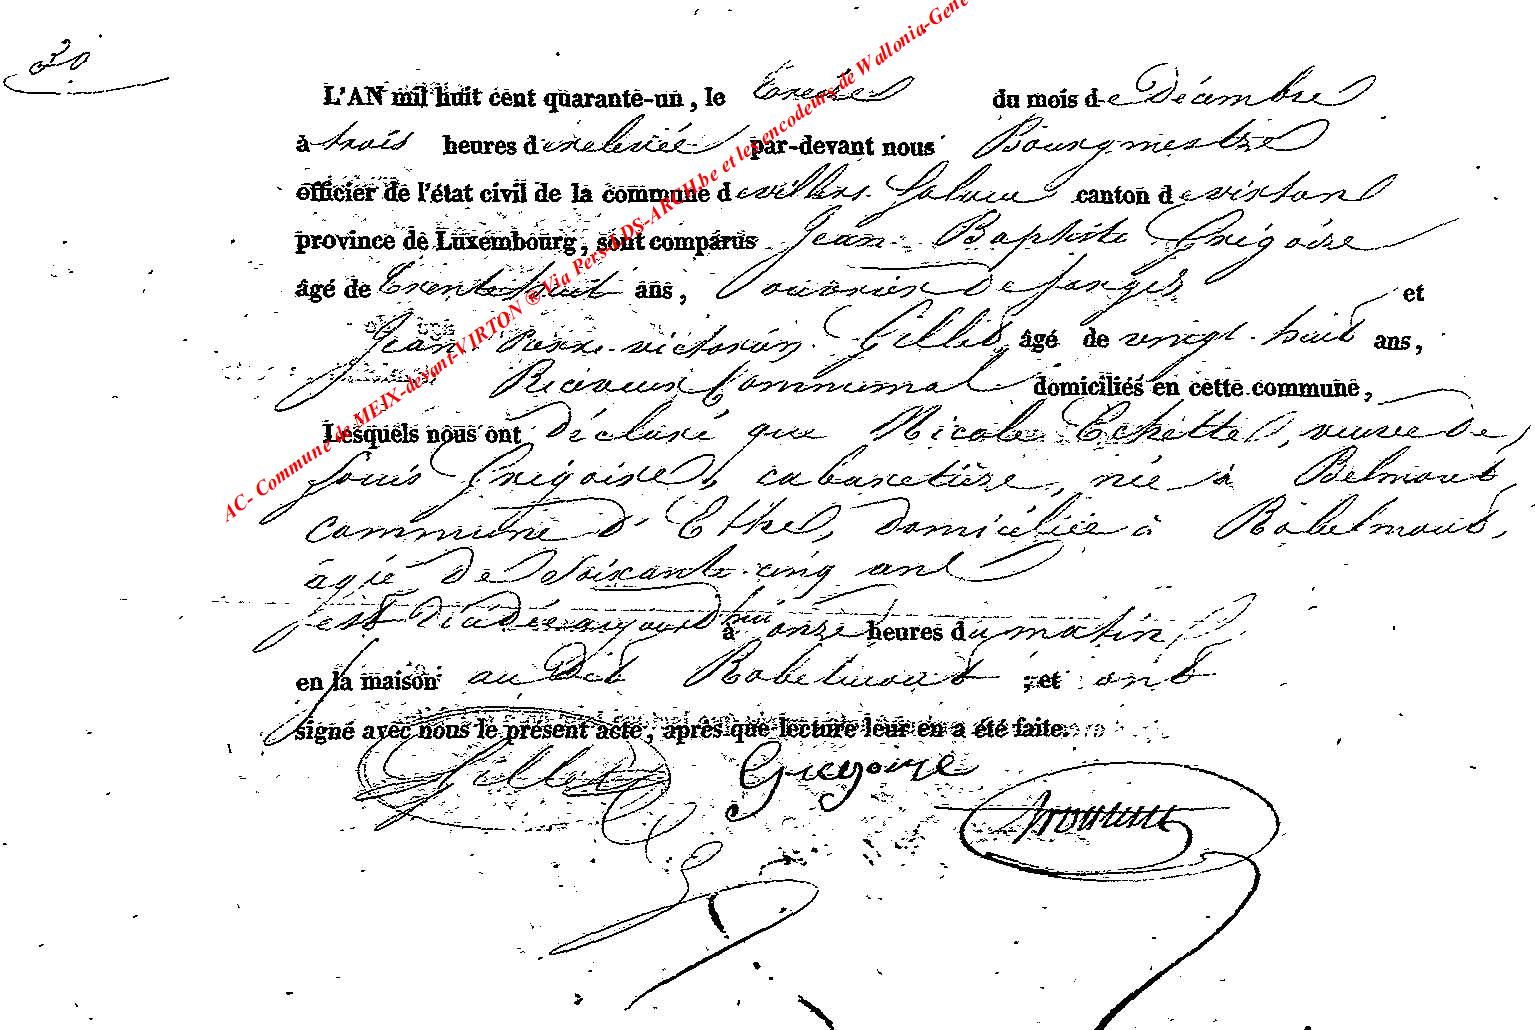 30
L'AN mil huit cent quarante-un, le treize du mois de Décembre
à trois heures de relevée par-devant nous Bourgmestre
officier de l'état civil de la commune de villers-Laloue canton de virton
province de Luxembourg, sont comparus Jean Baptiste Grégoire
âgé de Trente huit ans, ouvrier de forges et
Jean Pierre victorin Gillet, âgé de vingt-huit ans,
Receveur Communal domiciliés en cette commune,
Lesquels nous ont déclaré que Nicole Echette, veuve de
Louis Grégoire, cabaretière, née à Belmont,
commune d'Ethe, domiciliée à Robelmont,
âgée de Soixante-cinq ans
est décédée aujourd'hui à onze heures du matin
en la maison au Dit Robelmont ; et ont
signé avec nous le présent acte, après que lecture leur en a été faite.
Gillet Gregoire
AC- Commune de MEIX-devant-VIRTON ® Via Pers-LDS-ARCH.be et les encodeurs de Wallonia-Gene